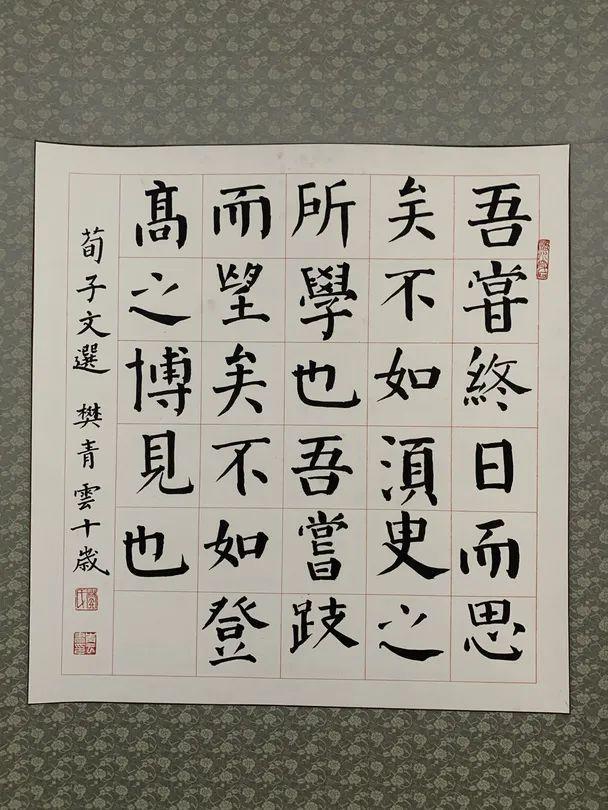 吾甞終日而思
矣不如湏臾之
所學也吾嘗跂
而望矣不如登
髙之博見也
荀子文選 樊青雲十歲